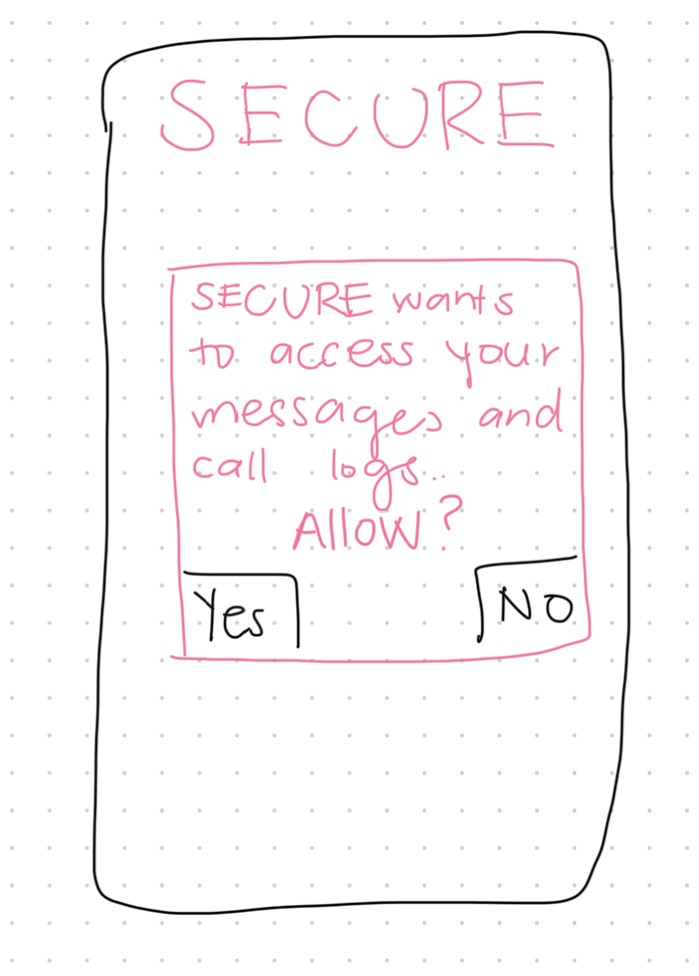 SECURE
SECURE wants
to access your
messages and
call logs..
Allow?
Yes
NO